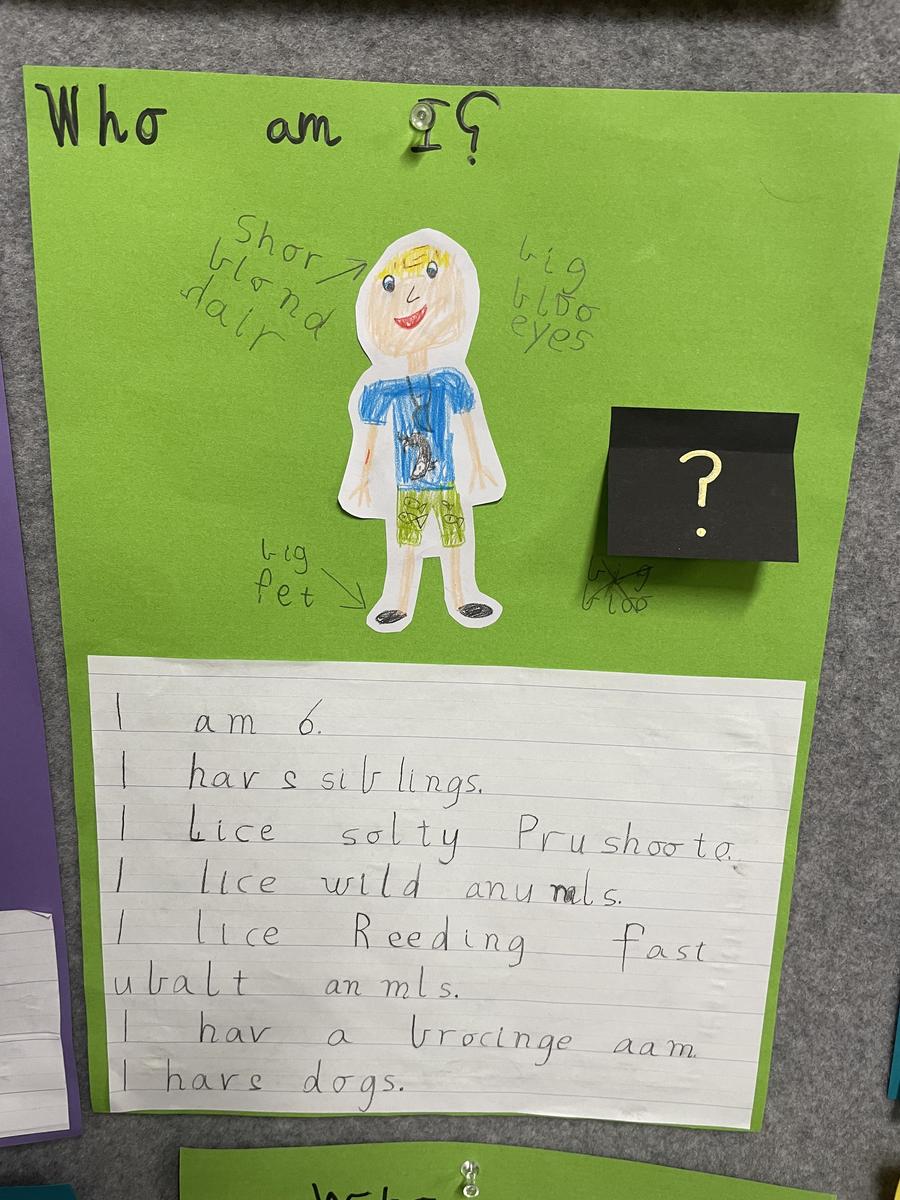 Who am I?
Shor
blond
hair
big
bloo
eyes
?
big
fet
big
bloo
I am 6.
I hav s siblings.
I Lice solty Prushoote.
I lice wild anumls.
I lice Reeding fast
ubalt anmls.
I hav a brocinge aam.
I hav s dogs.